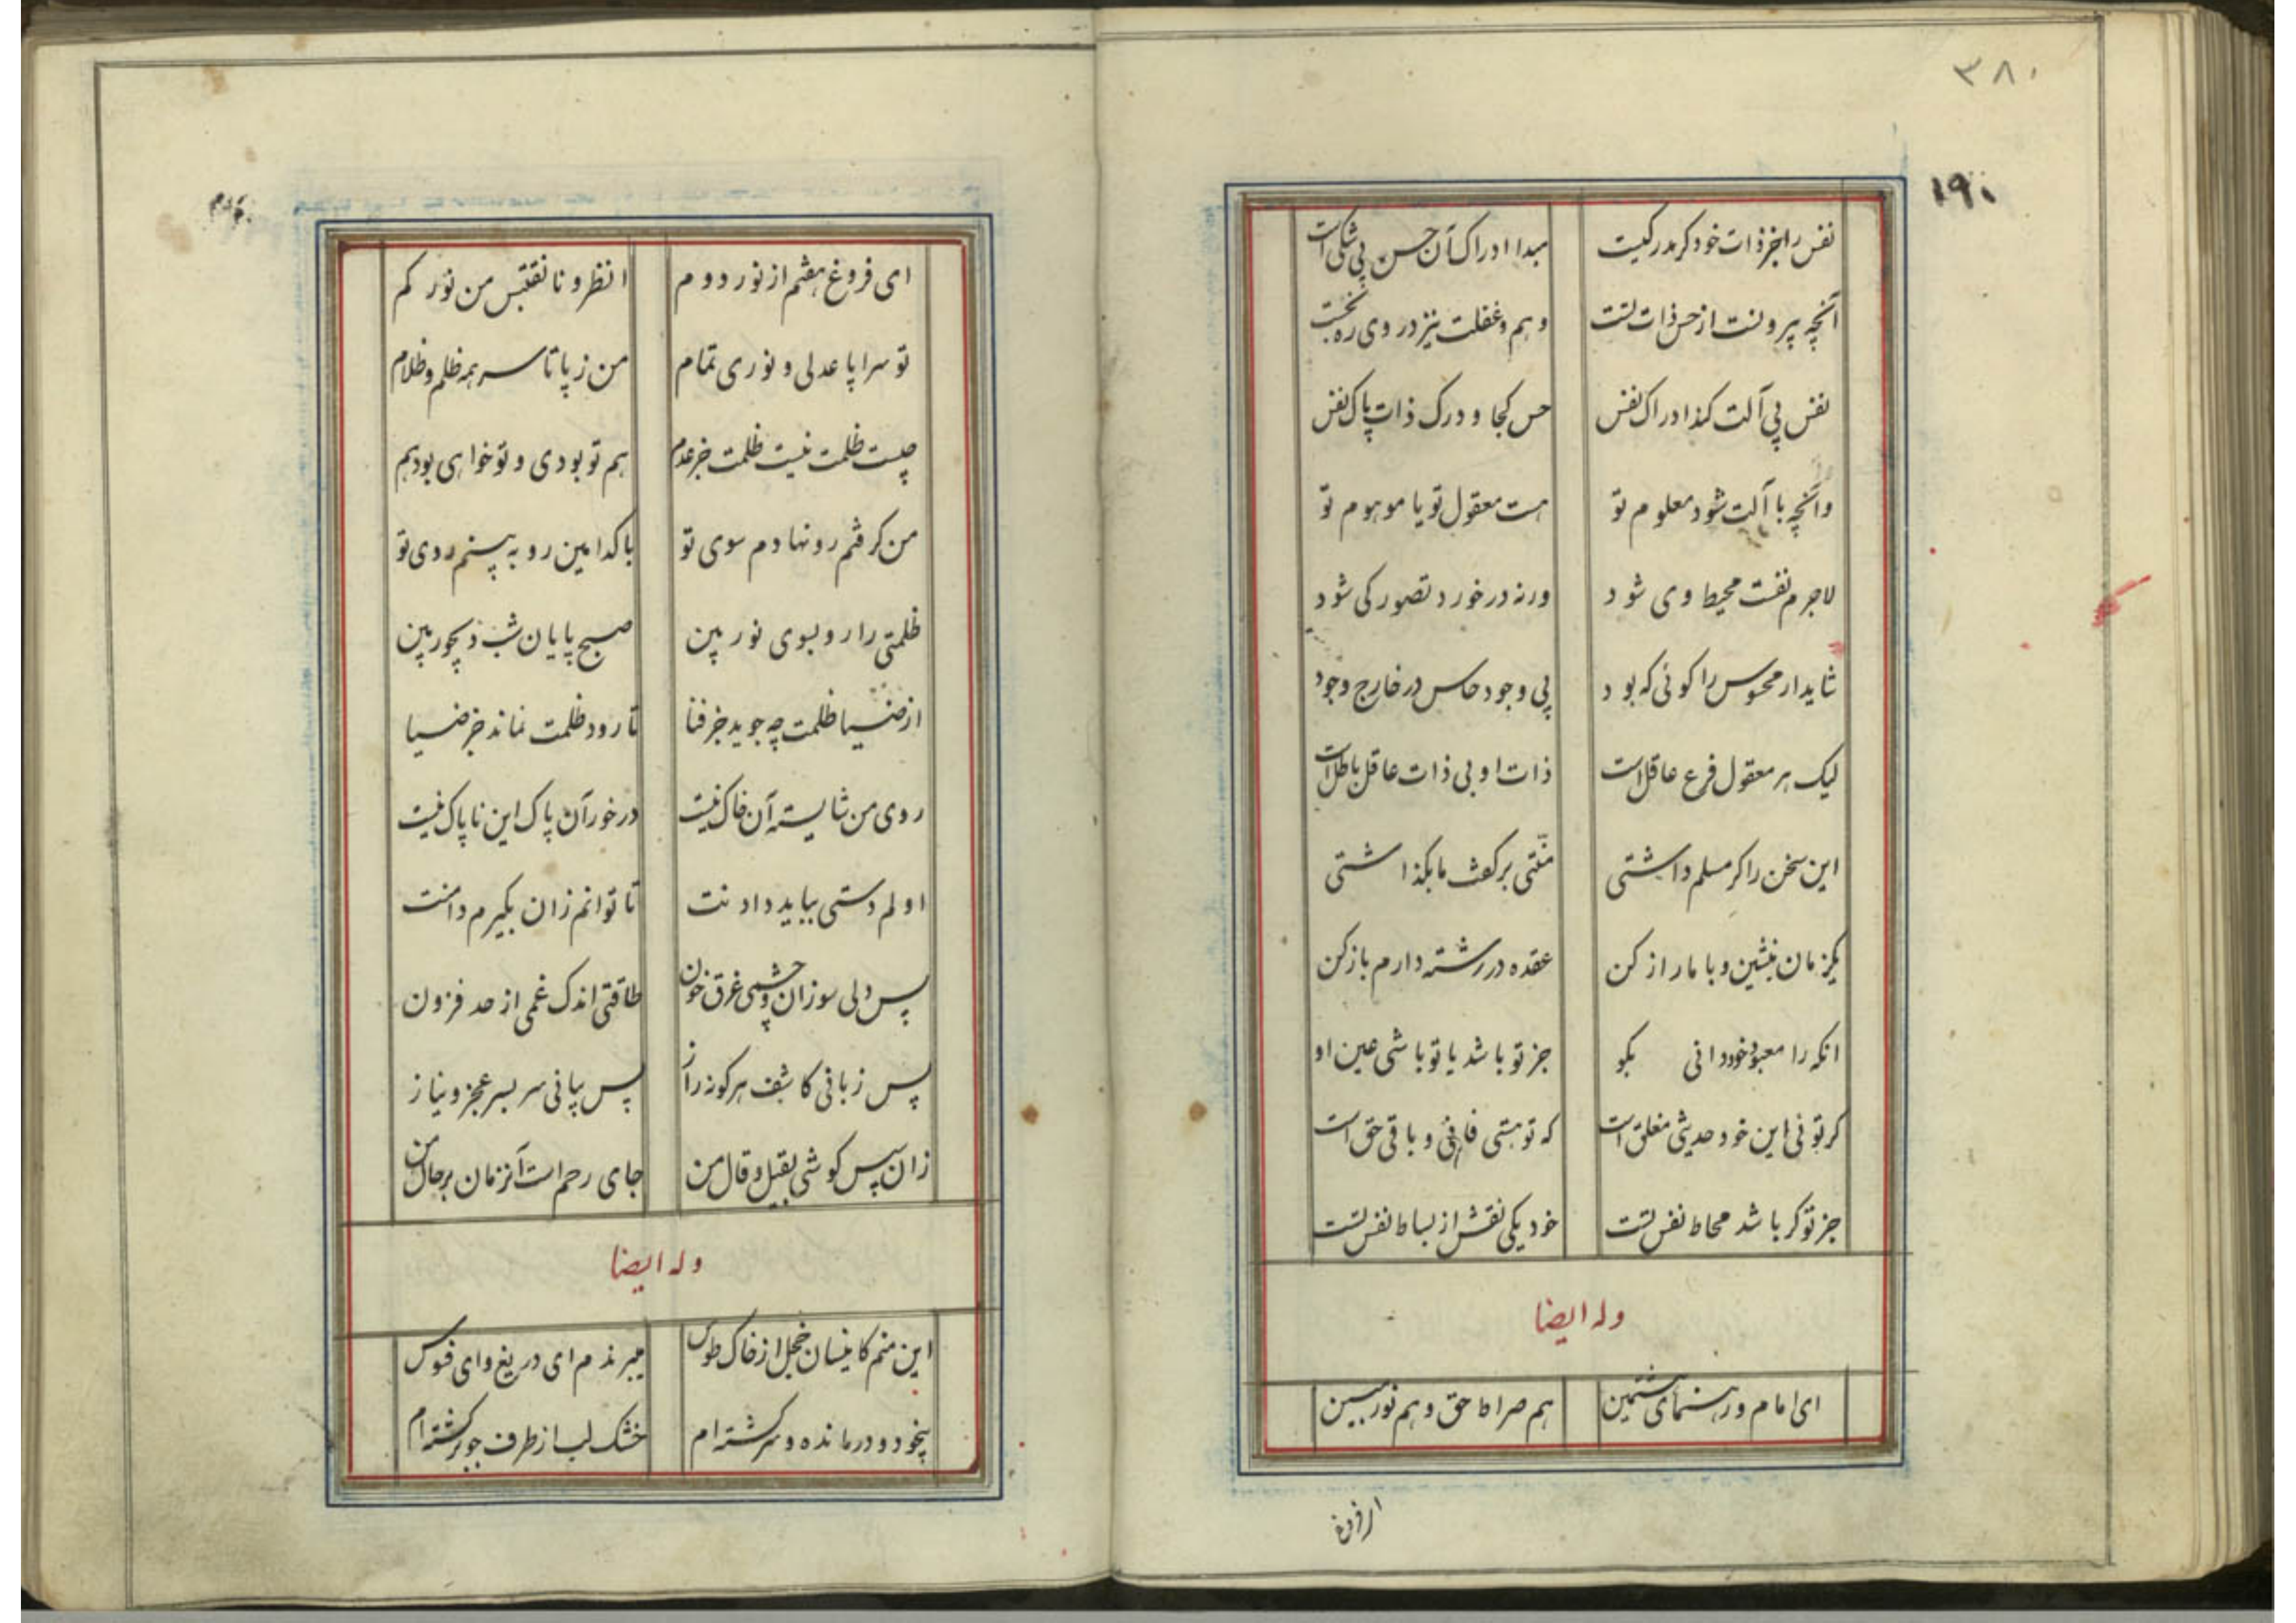 ۳۸۰
۱۹۰
نفس را جز ذات خود گر مدرکیست مبدا ادراک آن حس بی شکی است
آنچه بیرونست از حس ذات تست وهم و غفلت نیز در وی ره نجست
نفس بی آلت کند ادراک نفس حس کجا و درک ذات پاک نفس
وانچه با آلت شود معلوم تو هست معقول تو یا موهوم تو
لاجرم نفست محیط وی شود ورنه در خورد تصور کی شود
شاید ار محسوس را کوئی که بود بی وجود حاس در خارج وجود
لیک هر معقول فرع عاقل است ذات او بی ذات عاقل باطل است
این سخن را کر مسلم داشتی منتی بر کفت ما بگذاشتی
یکزمان بنشین و با ما راز کن عقده در رشته دارم باز کن
انکه را معبود خود دانی بکو جز تو باشد یا تو باشی عین او
کر توئی این خود حدیثی مغلق است که تو هستی فانی و باقی حق است
جز تو کر باشد محاط نفس تست خود یکی نقش از بساط نفس تست
وله ایضا
ای امام و رهنمای هشتمین هم صراط حق و هم نور مبین
ای فروغ هفتم از نور دوم انظرونا نقتبس من نورکم
تو سراپا عدلی و نوری تمام من ز پا تا سر همه ظلم و ظلام
چیست ظلمت نیست ظلمت جز عدم هم تو بودی و تو خواهی بود هم
من کرفتم رو نهادم سوی تو با کدامین رو به بینم روی تو
ظلمتی را رو بسوی نور بین صبح پایان شب دیجور بین
از ضیا ظلمت چه جوید جز فنا تا رود ظلمت نماند جز ضیا
روی من شایسته آن خاک نیست در خور آن پاک این ناپاک نیست
اولم دستی بباید دادنت تا توانم زان بکیرم دامنت
پس دلی سوزان و چشمی غرق خون طاقتی اندک غمی از حد فزون
پس زبانی کاشف هر کونه راز پس بیانی سر بسر عجز و نیاز
زان سپس کوشی بقیل و قال من جای رحم است آنزمان بر حال من
وله ایضا
این منم کاینسان خجل از خاک طوس میبرندم ای دریغ و ای فسوس
بیخود و درمانده و سرکشته ام خشک لب از طرف جو برکشته ام